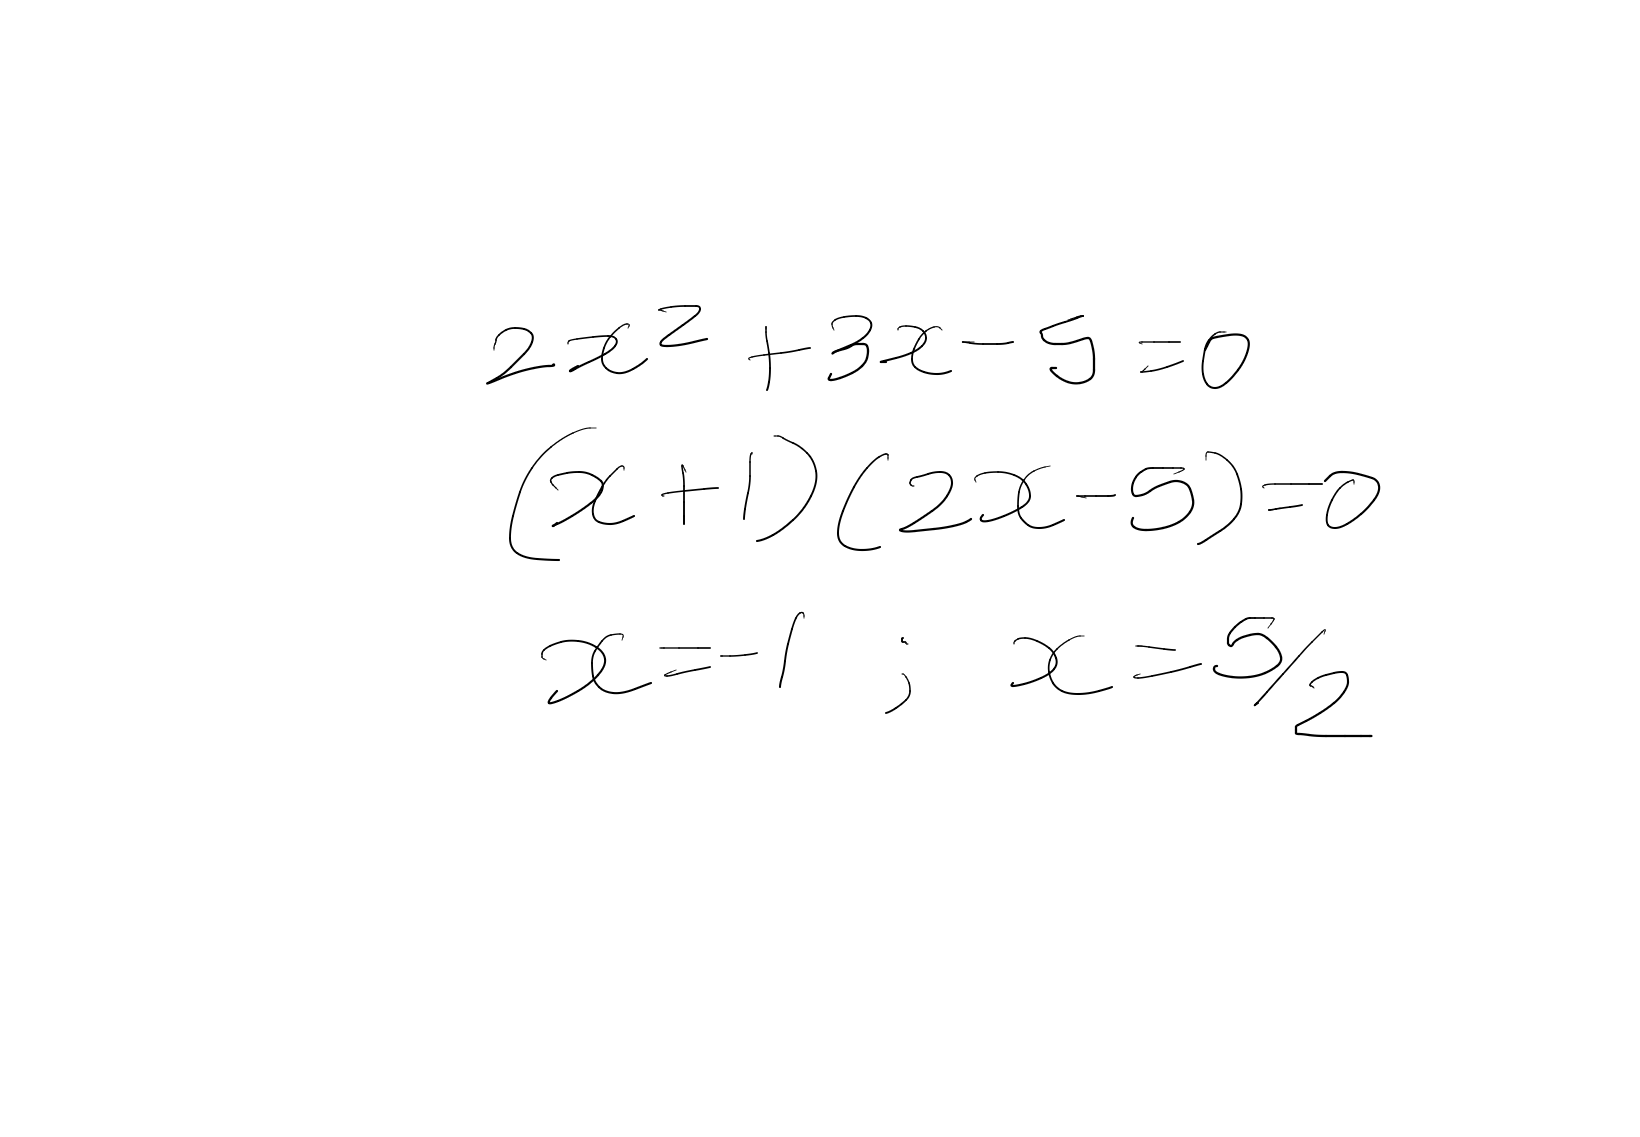 2x² + 3x - 5 = 0
(x + 1)(2x - 5) = 0
x = -1 ; x = 5/2